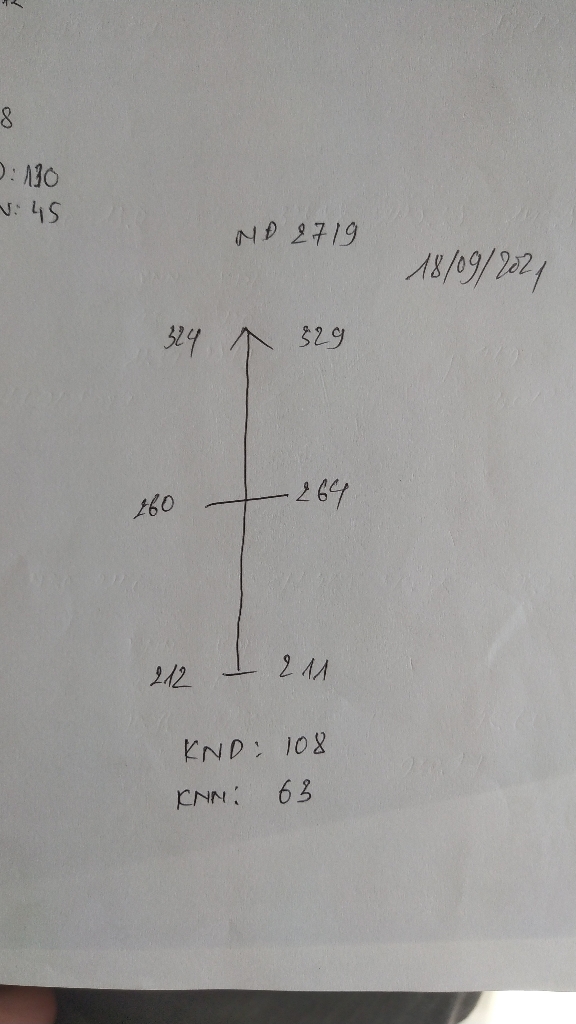 8
: 130
: 45
ND 2719
18/09/2021
324 329
260 264
212 211
KND: 108
KNN: 63